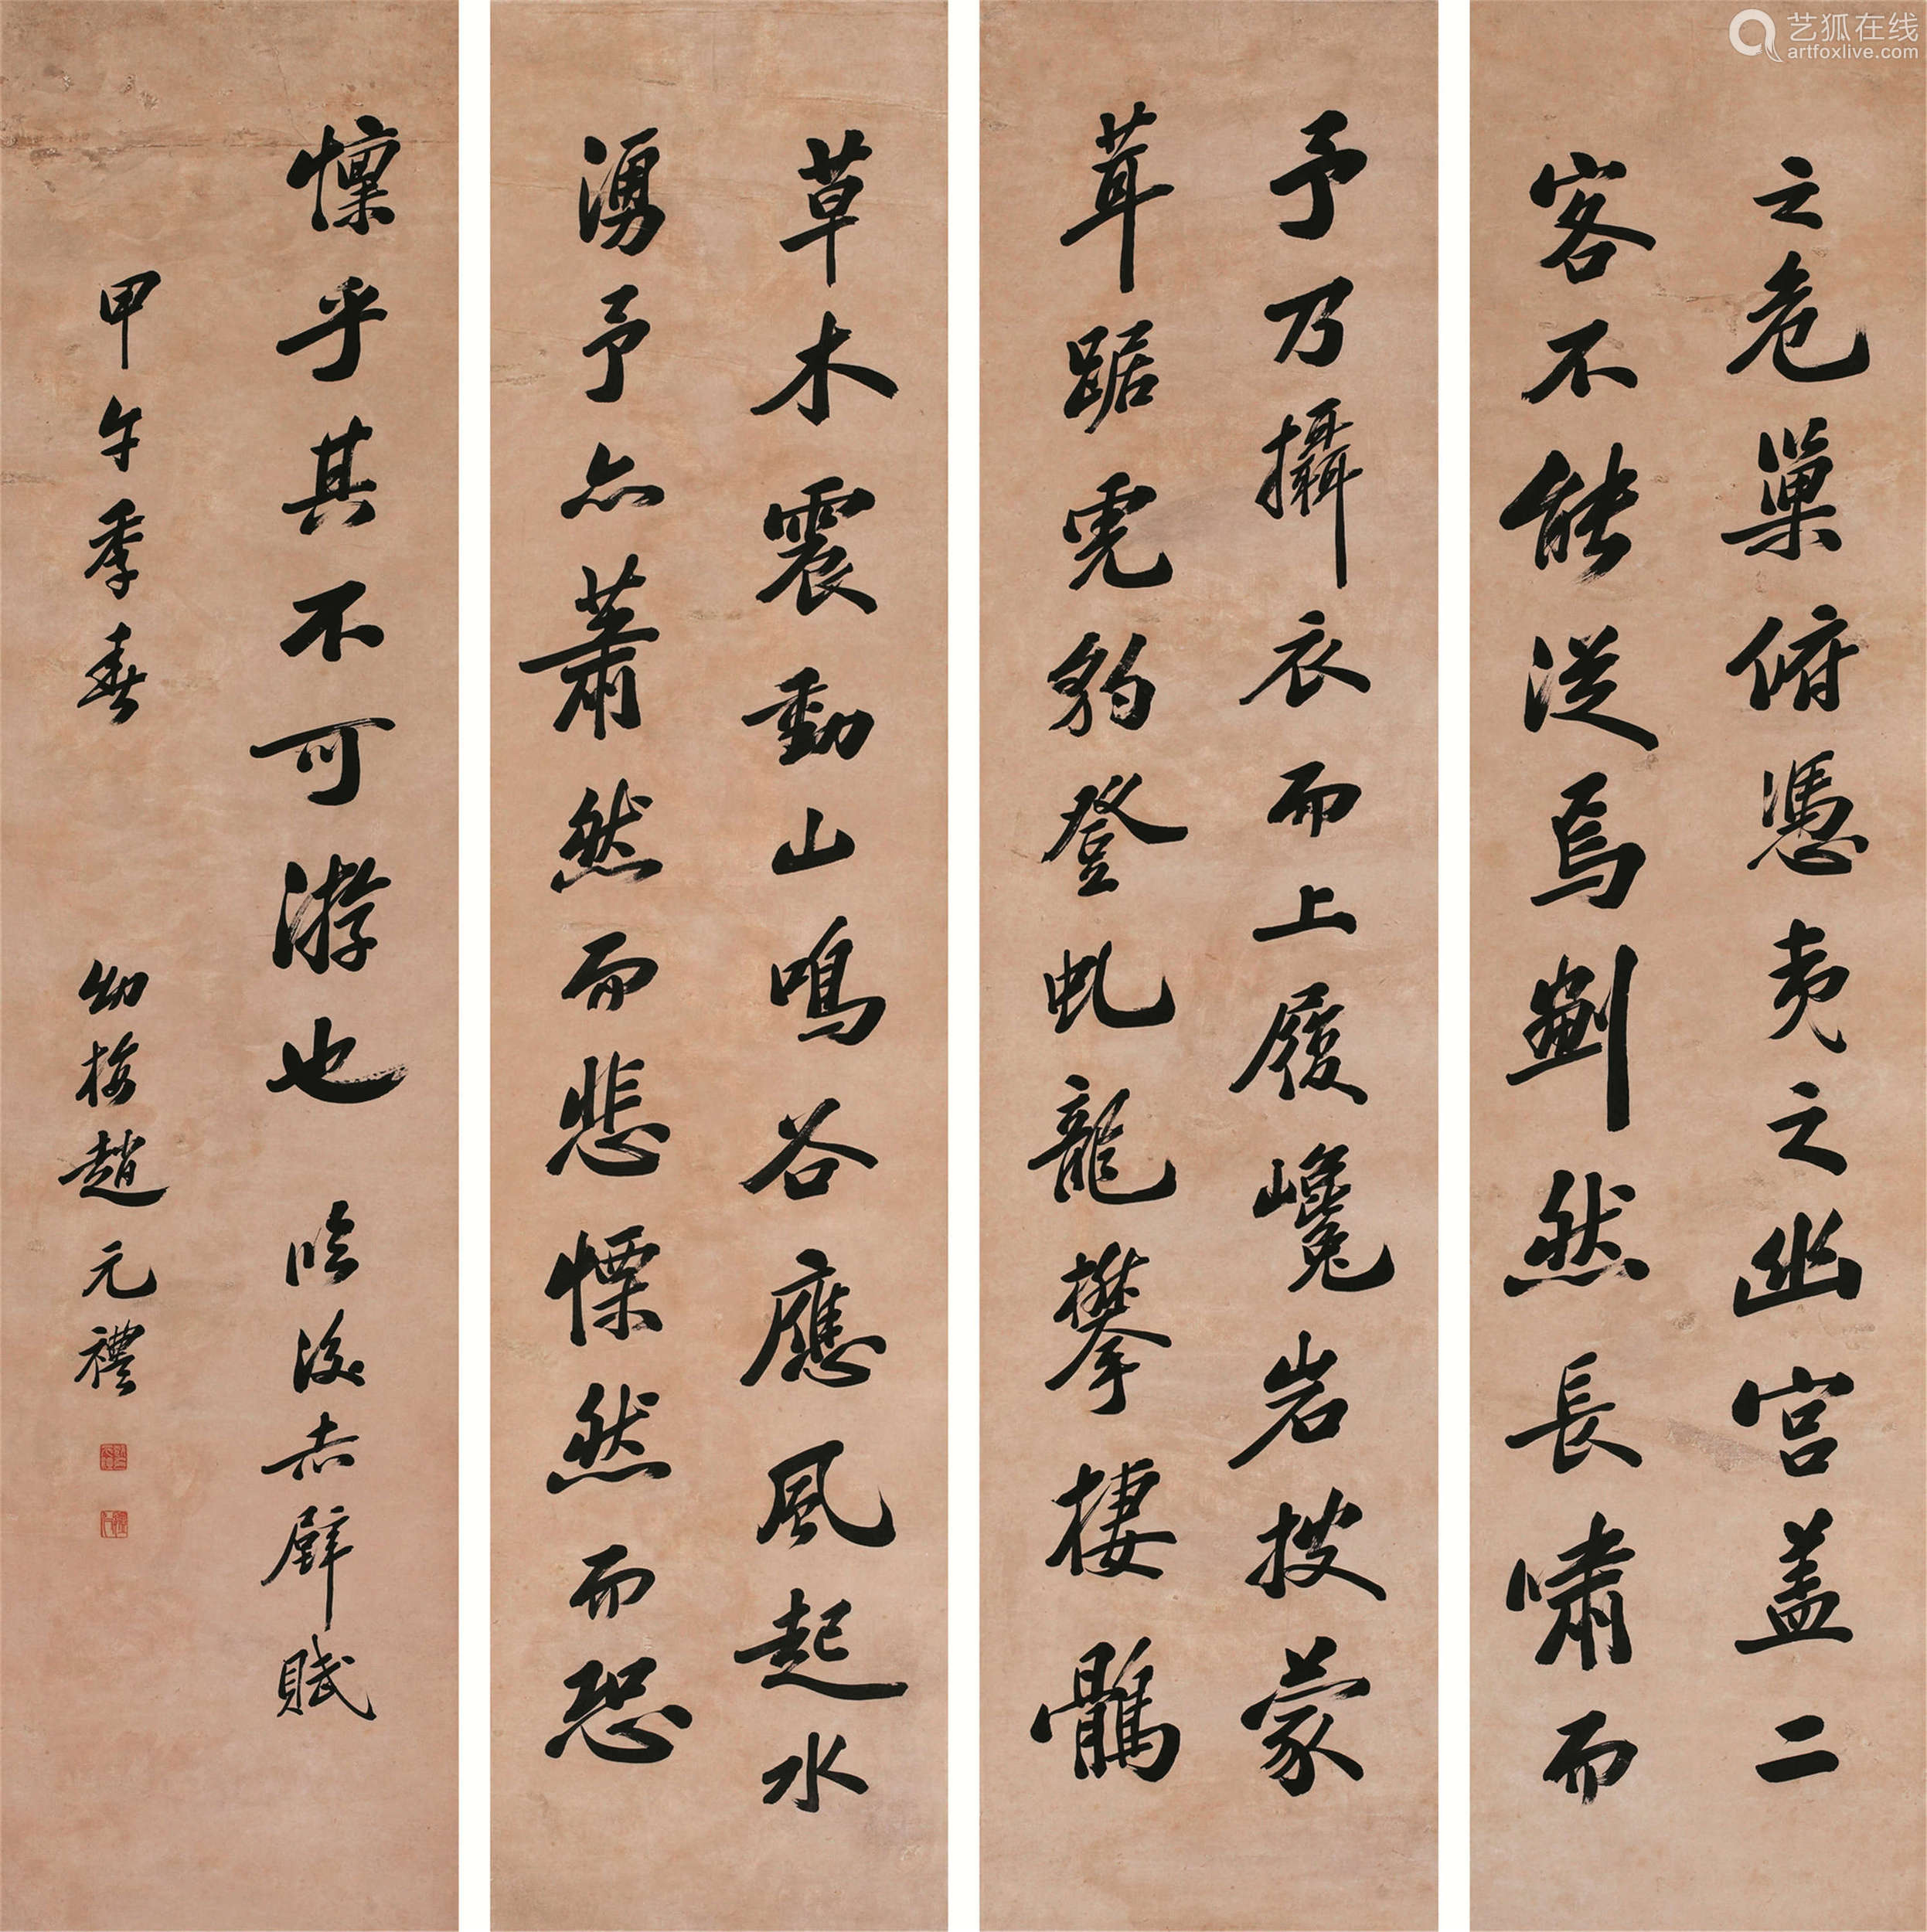 之危巢俯憑夷之幽宮盖二
客不能從焉劃然長嘯而
予乃攝衣而上履巉岩披蒙
茸踞虎豹登虬龍攀棲鶻
草木震動山鳴谷應風起水
湧予亦蕭然而悲慄然而恐
懍乎其不可游也 臨後赤壁賦
甲午季春 幼梅趙元禮
艺狐在线
artfoxlive.com